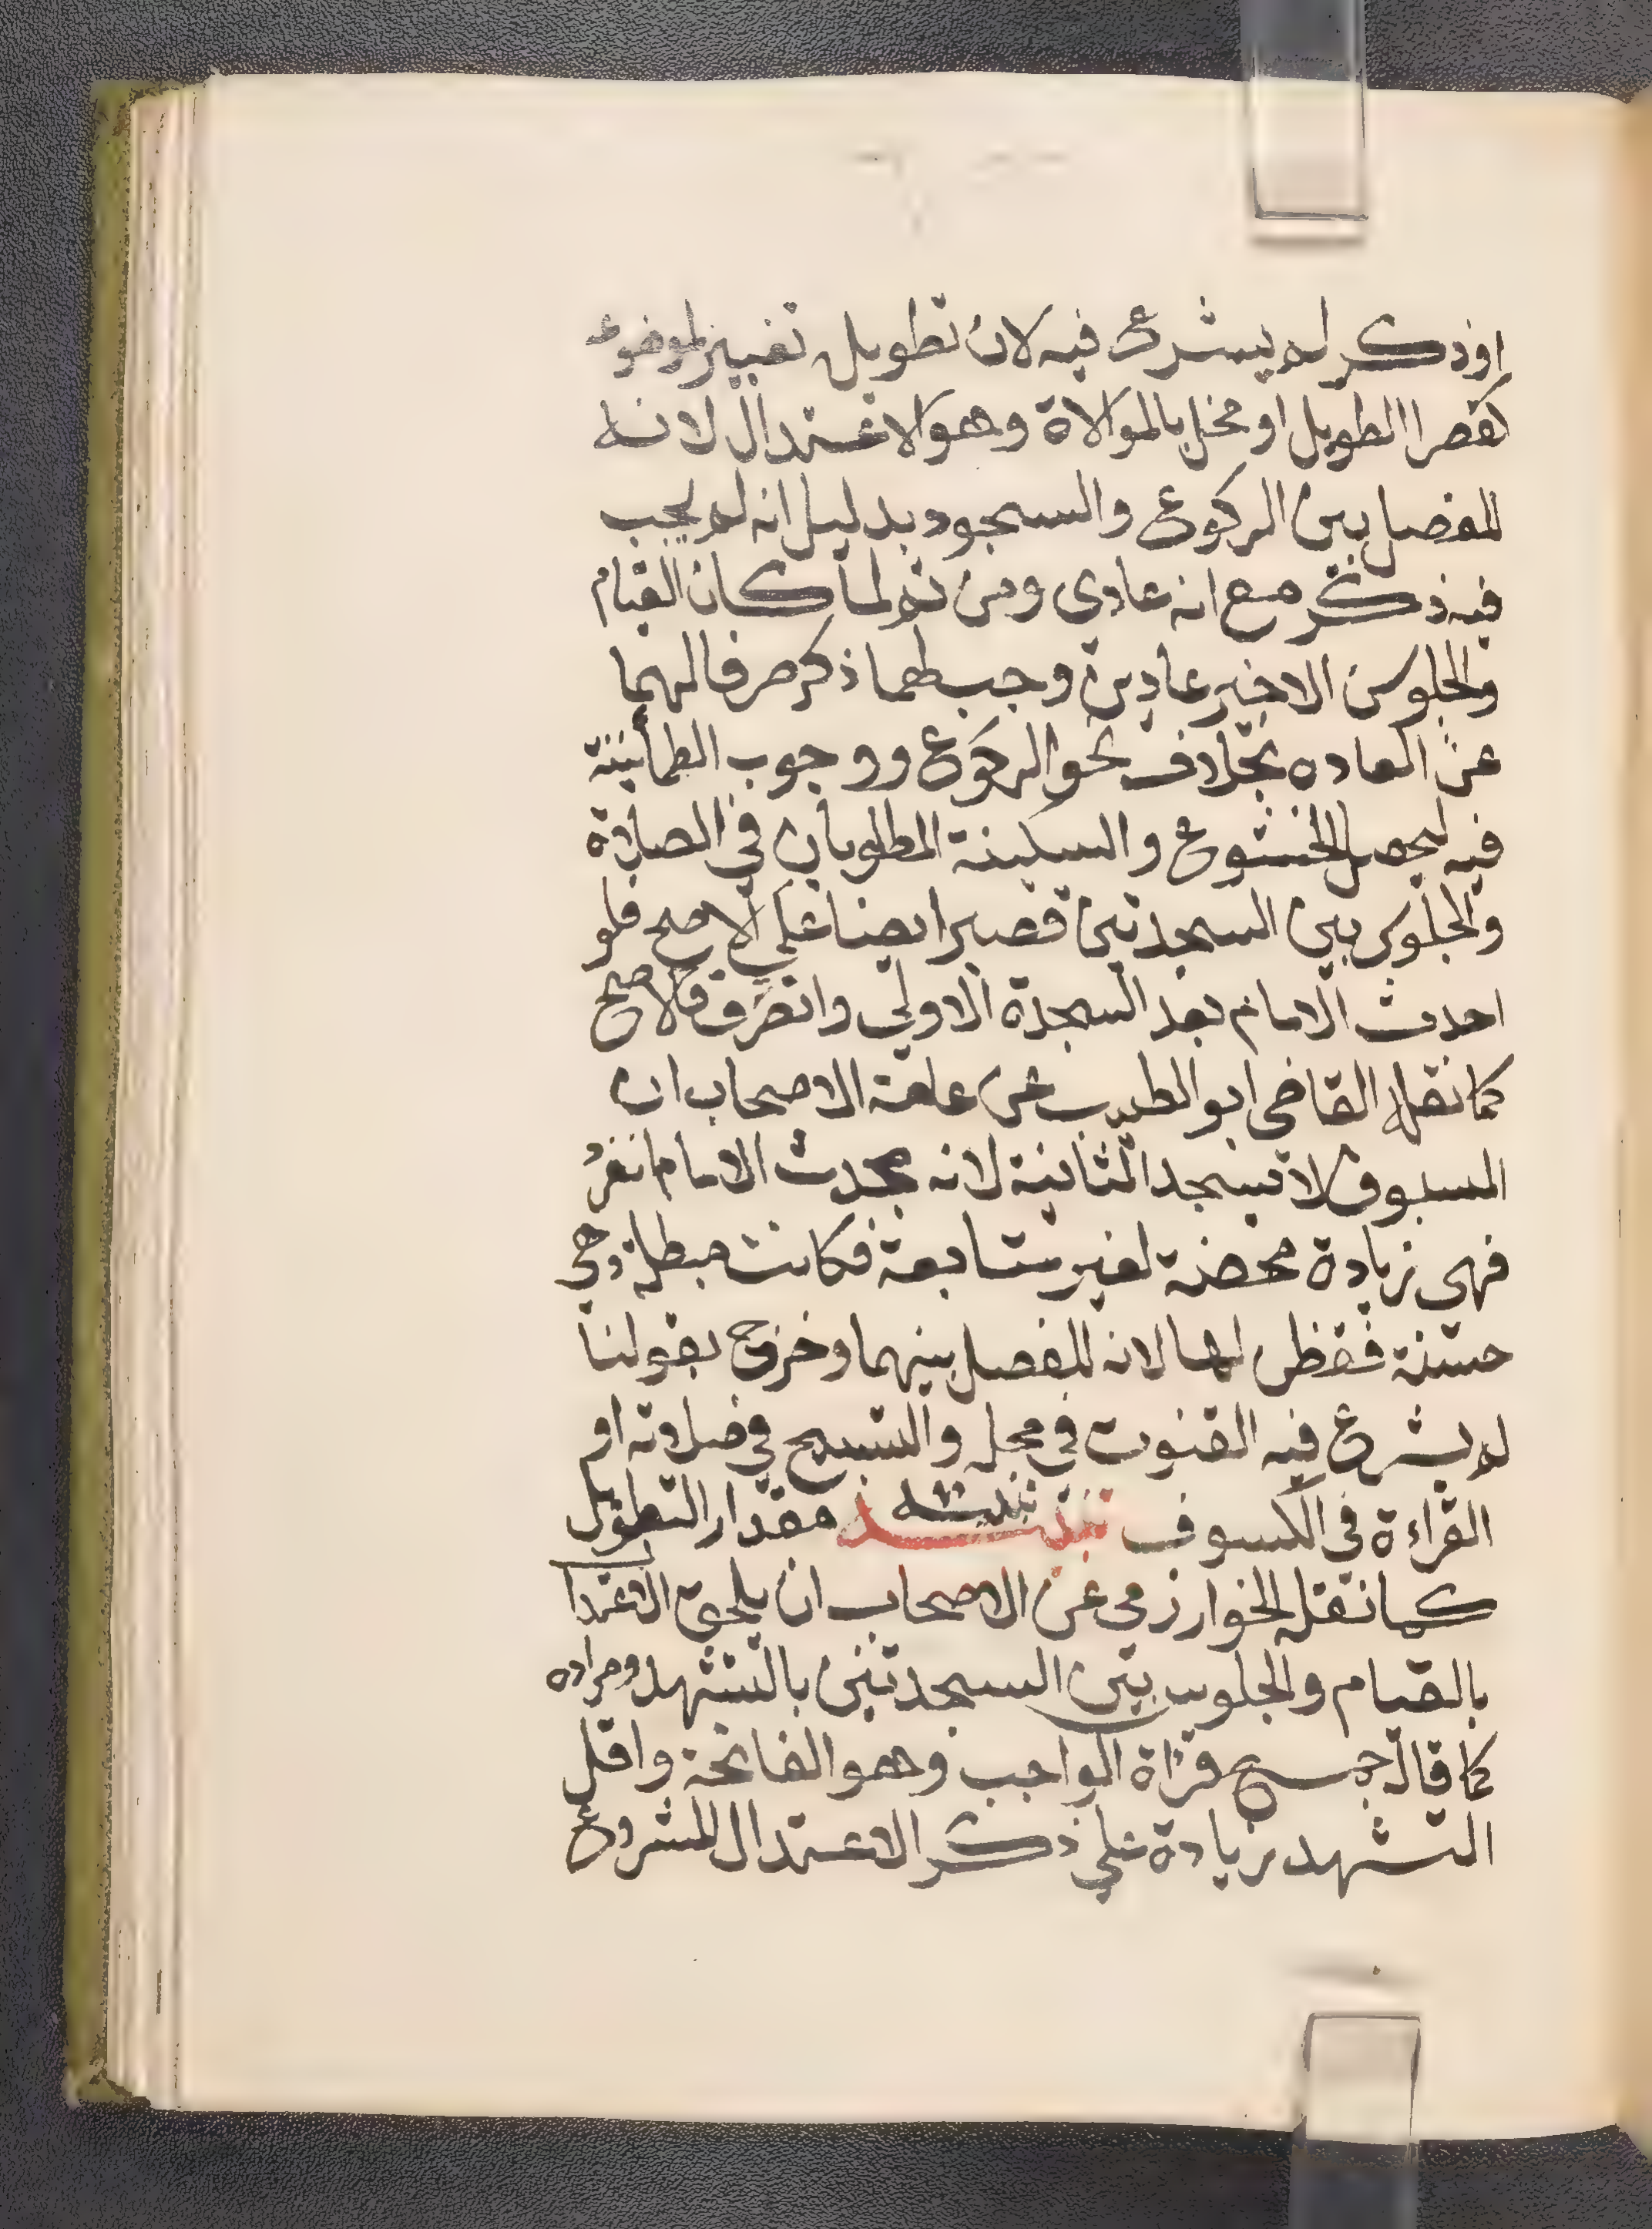 اوذكر لم يشرع فيه لان تطويل تغيير لموضوعه
كقصرا الطويل او مخل بالموالاة وهو الاعتدال لانه
للفصل بين الركوع والسجود بدليل انه لم يجب
فيه ذكر مع انه عادي ومن ثم لما كان القيام
والجلوس الاخير عاديين وجب لهما ذكر صرفا لهما
عن العاده بخلاف نحو الركوع ووجوب الطمانينة
فيه ليحصل الخشوع والسكينة المطلوبان في الصلاة
والجلوس بين السجدتين قصير ايضا على الاصح فلو
احدث الامام بعد السجدة الاولي وانصرف فالاصح
كما نقله القاضي ابو الطيب عن عامة الاصحاب ان
المسبوق لا يسجد الثانية لانه بحدث الامام انفرد
فهي زيادة محضة لغير متابعة فكانت مبطلة وهي
لها لانه للفصل بينهما وخرج بقولنا
لم يشرع فيه القنوت في محله والتسبيح في صلاته او
القراءة في الكسوف تنبيه تنبيه مقدار التطويل
كما نقله الخوارزمي عن الاصحاب ان يلحق الاعتدال
بالقيام والجلوس بين السجدتين بالتشهد ومراده
كما قال جمع قراة الواجب وهو الفاتحة واقل
التشهد زيادة علي ذكر الاعتدال المشروع